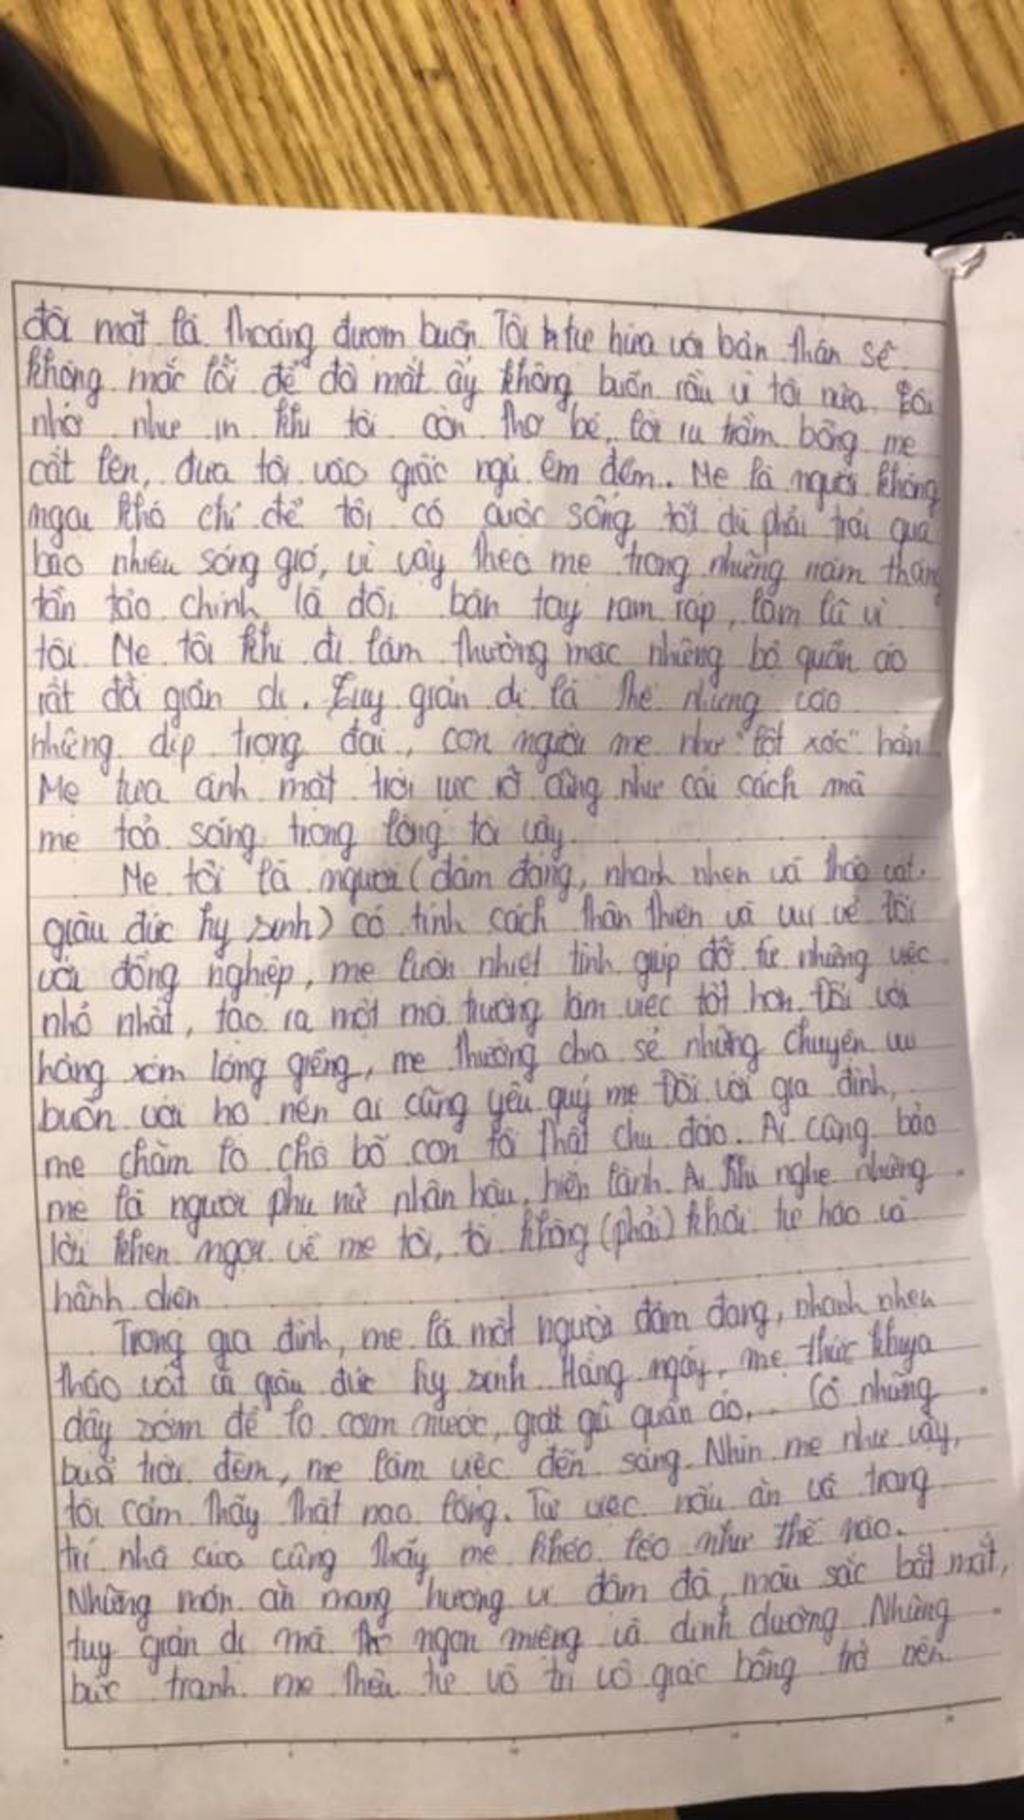 đôi mắt lá thoáng đượm buồn. Tôi tự hứa với bản thân sẽ
không mắc lỗi để đôi mắt ấy không buồn rầu vì tôi nữa. Tôi
nhớ như in khi tôi còn thơ bé, lời ru trầm bổng mẹ
cất lên, đưa tôi vào giấc ngủ êm đềm. Mẹ là người không
ngại khó chỉ để tôi có cuộc sống tốt dù phải trải qua
bao nhiêu sóng gió, vì vậy theo mẹ trong những năm tháng
tần tảo chính là đôi bàn tay ram ráp, lam lũ vì
tôi. Mẹ tôi khi đi làm thường mặc những bộ quần áo
rất đỗi giản dị. Tuy giản dị là thế nhưng vào
những dịp trọng đại, con người mẹ như "lột xác" hẳn.
Mẹ tựa ánh mặt trời rực rỡ cũng như cái cách mà
mẹ toả sáng trong lòng tôi vậy.
Mẹ tôi là người (đảm đang, nhanh nhẹn và tháo vát.
giàu đức hy sinh) có tính cách thân thiện và vui vẻ. Đối
với đồng nghiệp, mẹ luôn nhiệt tình giúp đỡ từ những việc
nhỏ nhất, tạo ra một môi trường làm việc tốt hơn. Đối với
hàng xóm láng giềng, mẹ thường chia sẻ những chuyện vui
buồn với họ nên ai cũng yêu quý mẹ. Đối với gia đình,
mẹ chăm lo cho bố con tôi thật chu đáo. Ai cũng bảo
mẹ là người phụ nữ nhân hậu, hiền lành. Ai khi nghe những
lời khen ngợi về mẹ tôi, tôi không (phải) khỏi tự hào và
hãnh diện
Trong gia đình, mẹ là một người đảm đang, nhanh nhẹn
tháo vát và giàu đức hy sinh. Hằng ngày, mẹ thức khuya
dậy sớm để lo cơm nước, giặt giũ quần áo,... Có những
buổi trời đêm, mẹ làm việc đến sáng. Nhìn mẹ như vậy,
tôi cảm thấy thật nao lòng. Từ việc nấu ăn và trang
trí nhà cửa cũng thấy mẹ khéo léo như thế nào.
Những món ăn mang hương vị đậm đà, màu sắc bắt mắt,
tuy giản dị mà ngon miệng và dinh dưỡng. Những
bức tranh mẹ thêu từ vô tri vô giác bỗng trở nên